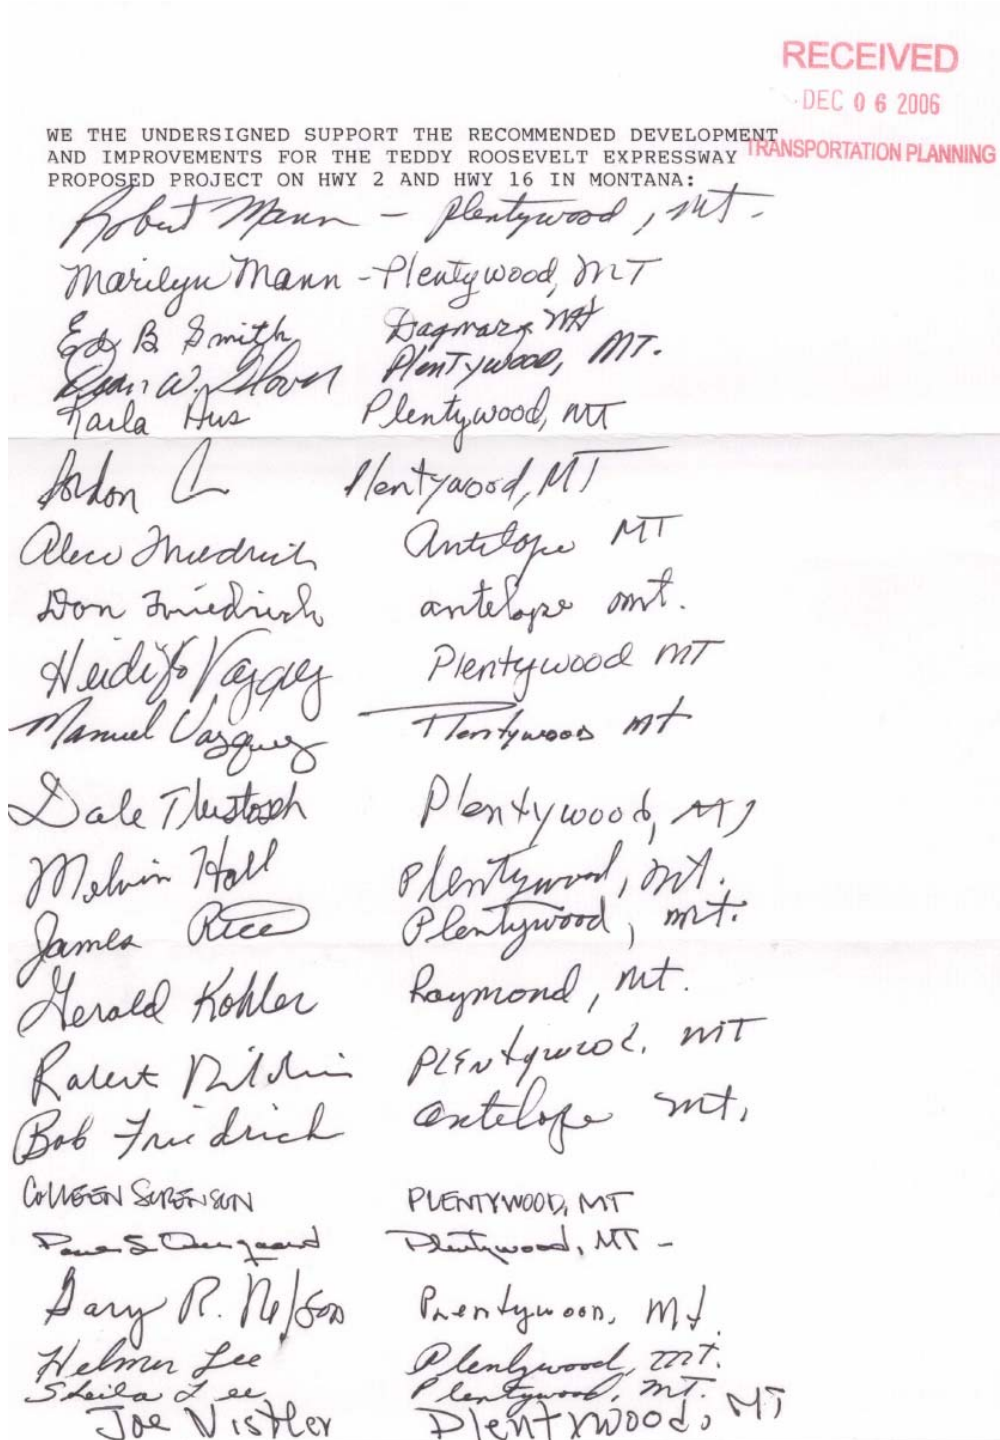 RECEIVED
DEC 0 6 2006
TRANSPORTATION PLANNING
WE THE UNDERSIGNED SUPPORT THE RECOMMENDED DEVELOPMENT
AND IMPROVEMENTS FOR THE TEDDY ROOSEVELT EXPRESSWAY
PROPOSED PROJECT ON HWY 2 AND HWY 16 IN MONTANA:
Robert Mann - Plentywood, Mt.
Marilyn Mann - Plentywood, MT
Ed B Smith Dagmar, Mt
W. Plentywood, MT.
Karla Hus Plentywood, MT
Plentywood, MT
Friedrich Antelope MT
Don Friedrich antelope mt.
Heidi Vazquez Plentywood MT
Manuel Vazquez Plentywood Mt
Dale Plentywood, MT
Melvin Hall Plentywood, Mt.
James Rice Plentywood, mt.
Gerald Kohler Raymond, Mt.
Robert Plentywood, MT
Bob Friedrich antelope Mt.
COLLEEN SORENSON PLENTYWOOD, MT
Plentywood, MT -
Gary R. Nelson Plentywood, Mt.
Helmer Lee Plentywood, MT.
Sheila Lee Plentywood, MT.
Joe Vistler Plentywood, MT